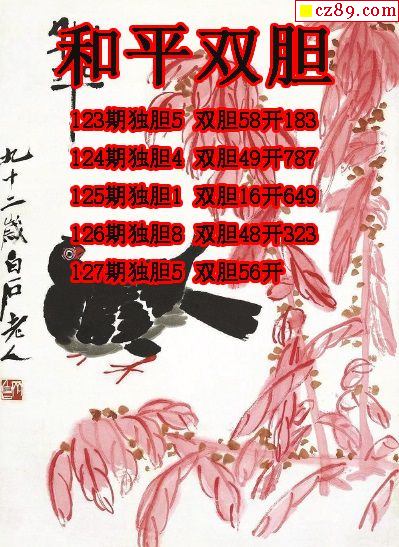 cz89.com
和平双胆
123期独胆5 双胆58开183
124期独胆4 双胆49开787
125期独胆1 双胆16开649
126期独胆8 双胆48开323
127期独胆5 双胆56开
九十二岁白石老人